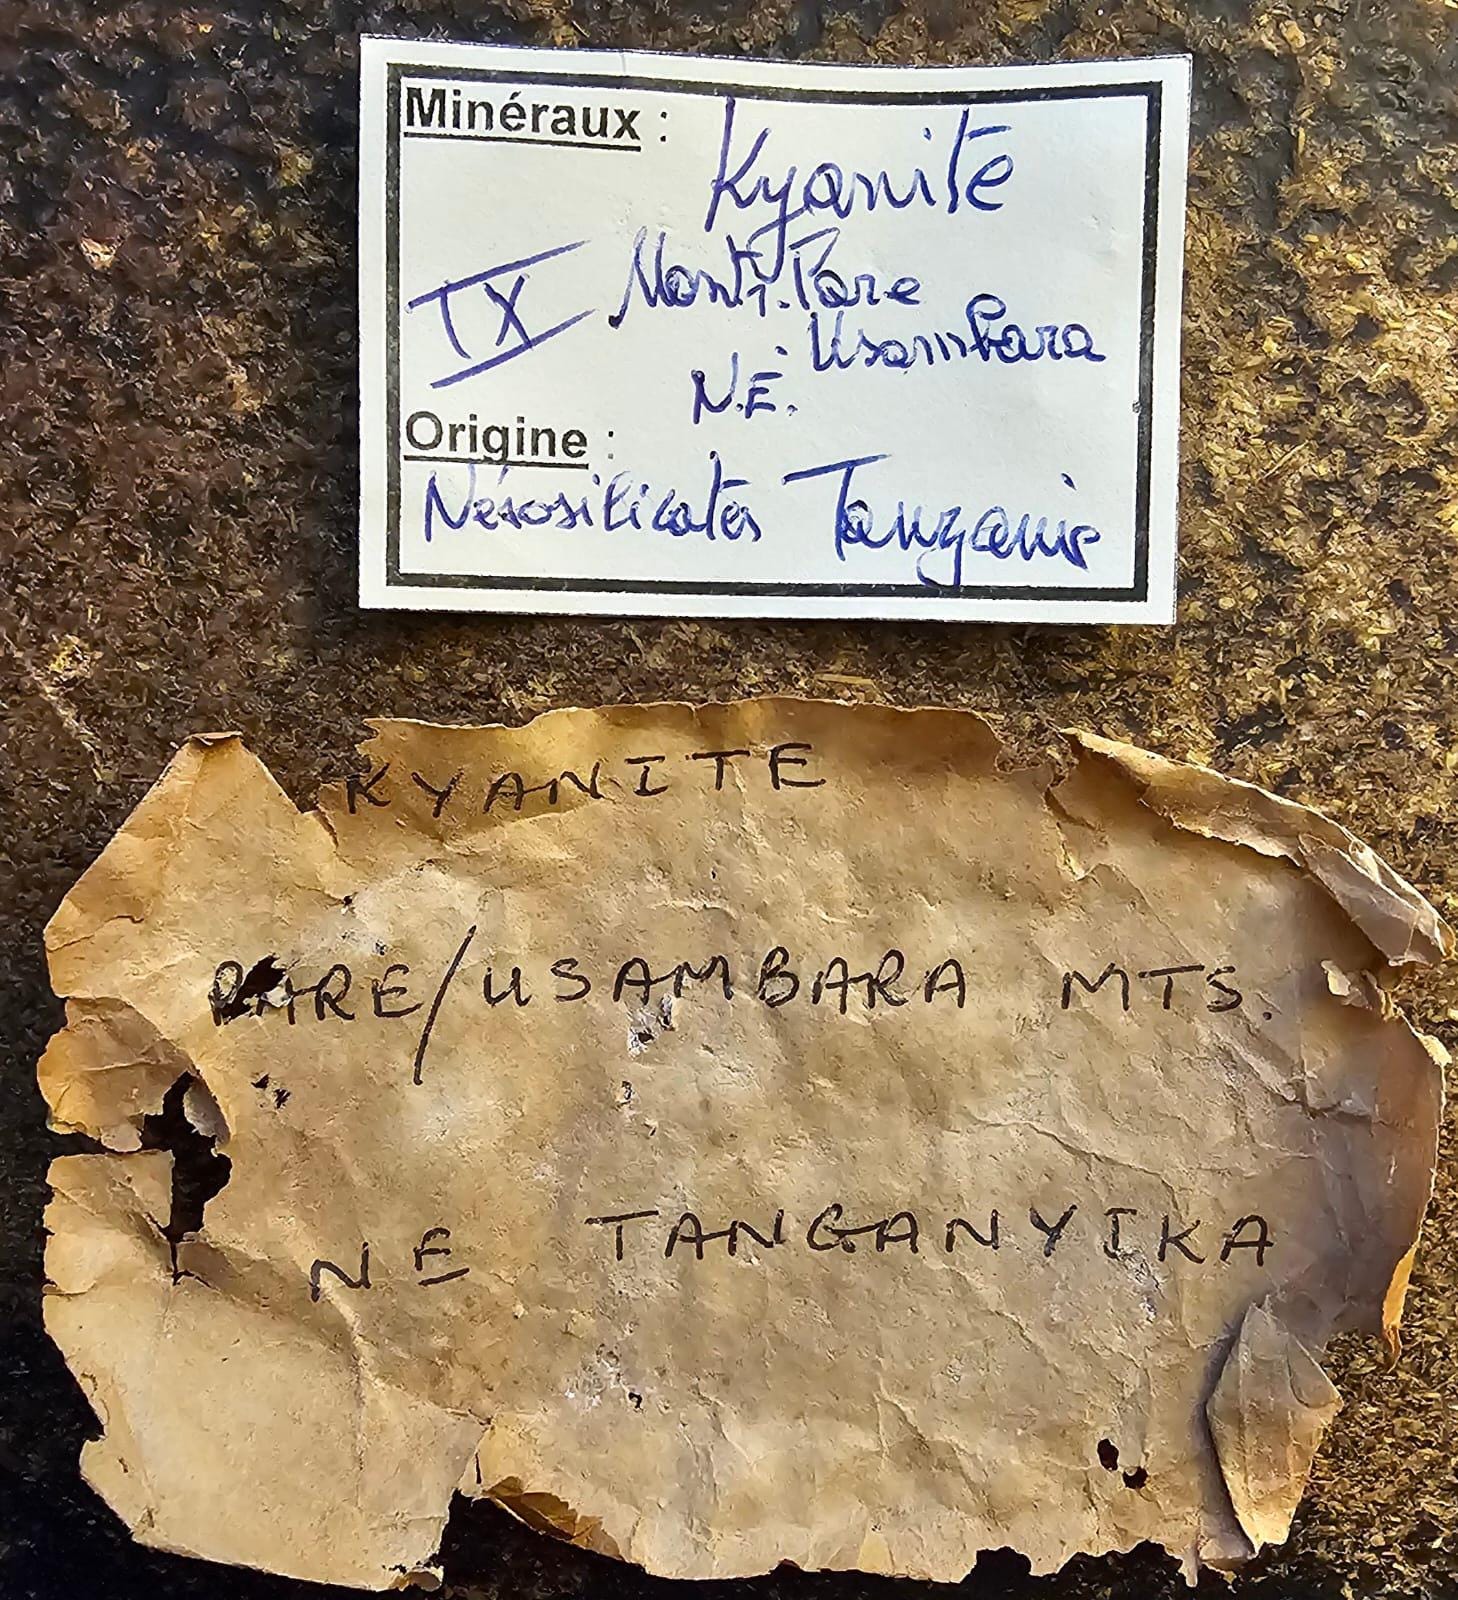 Minéraux :
Kyanite
IX
Monts. Pare
Usambara
N.E.
Origine :
Nésosilicates Tanzanie
KYANITE
PARE/USAMBARA MTS.
NE TANGANYIKA